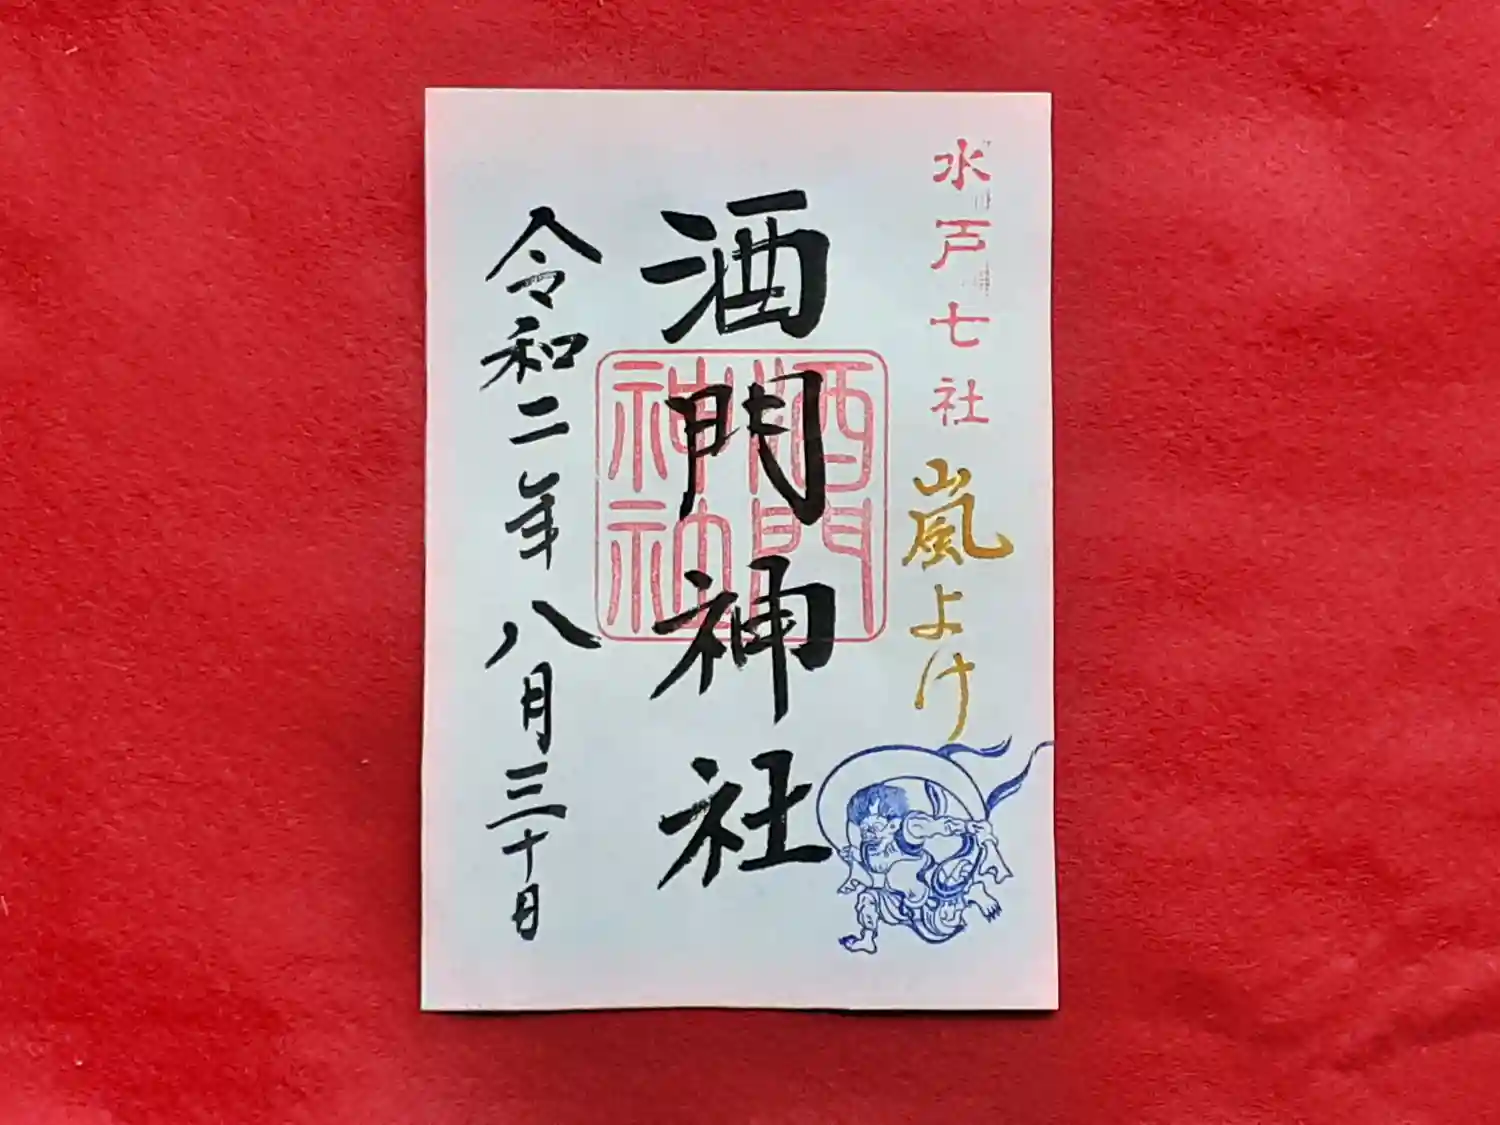 水戸七社
嵐よけ
酒門神社
酒門
神社
令和二年八月三十日